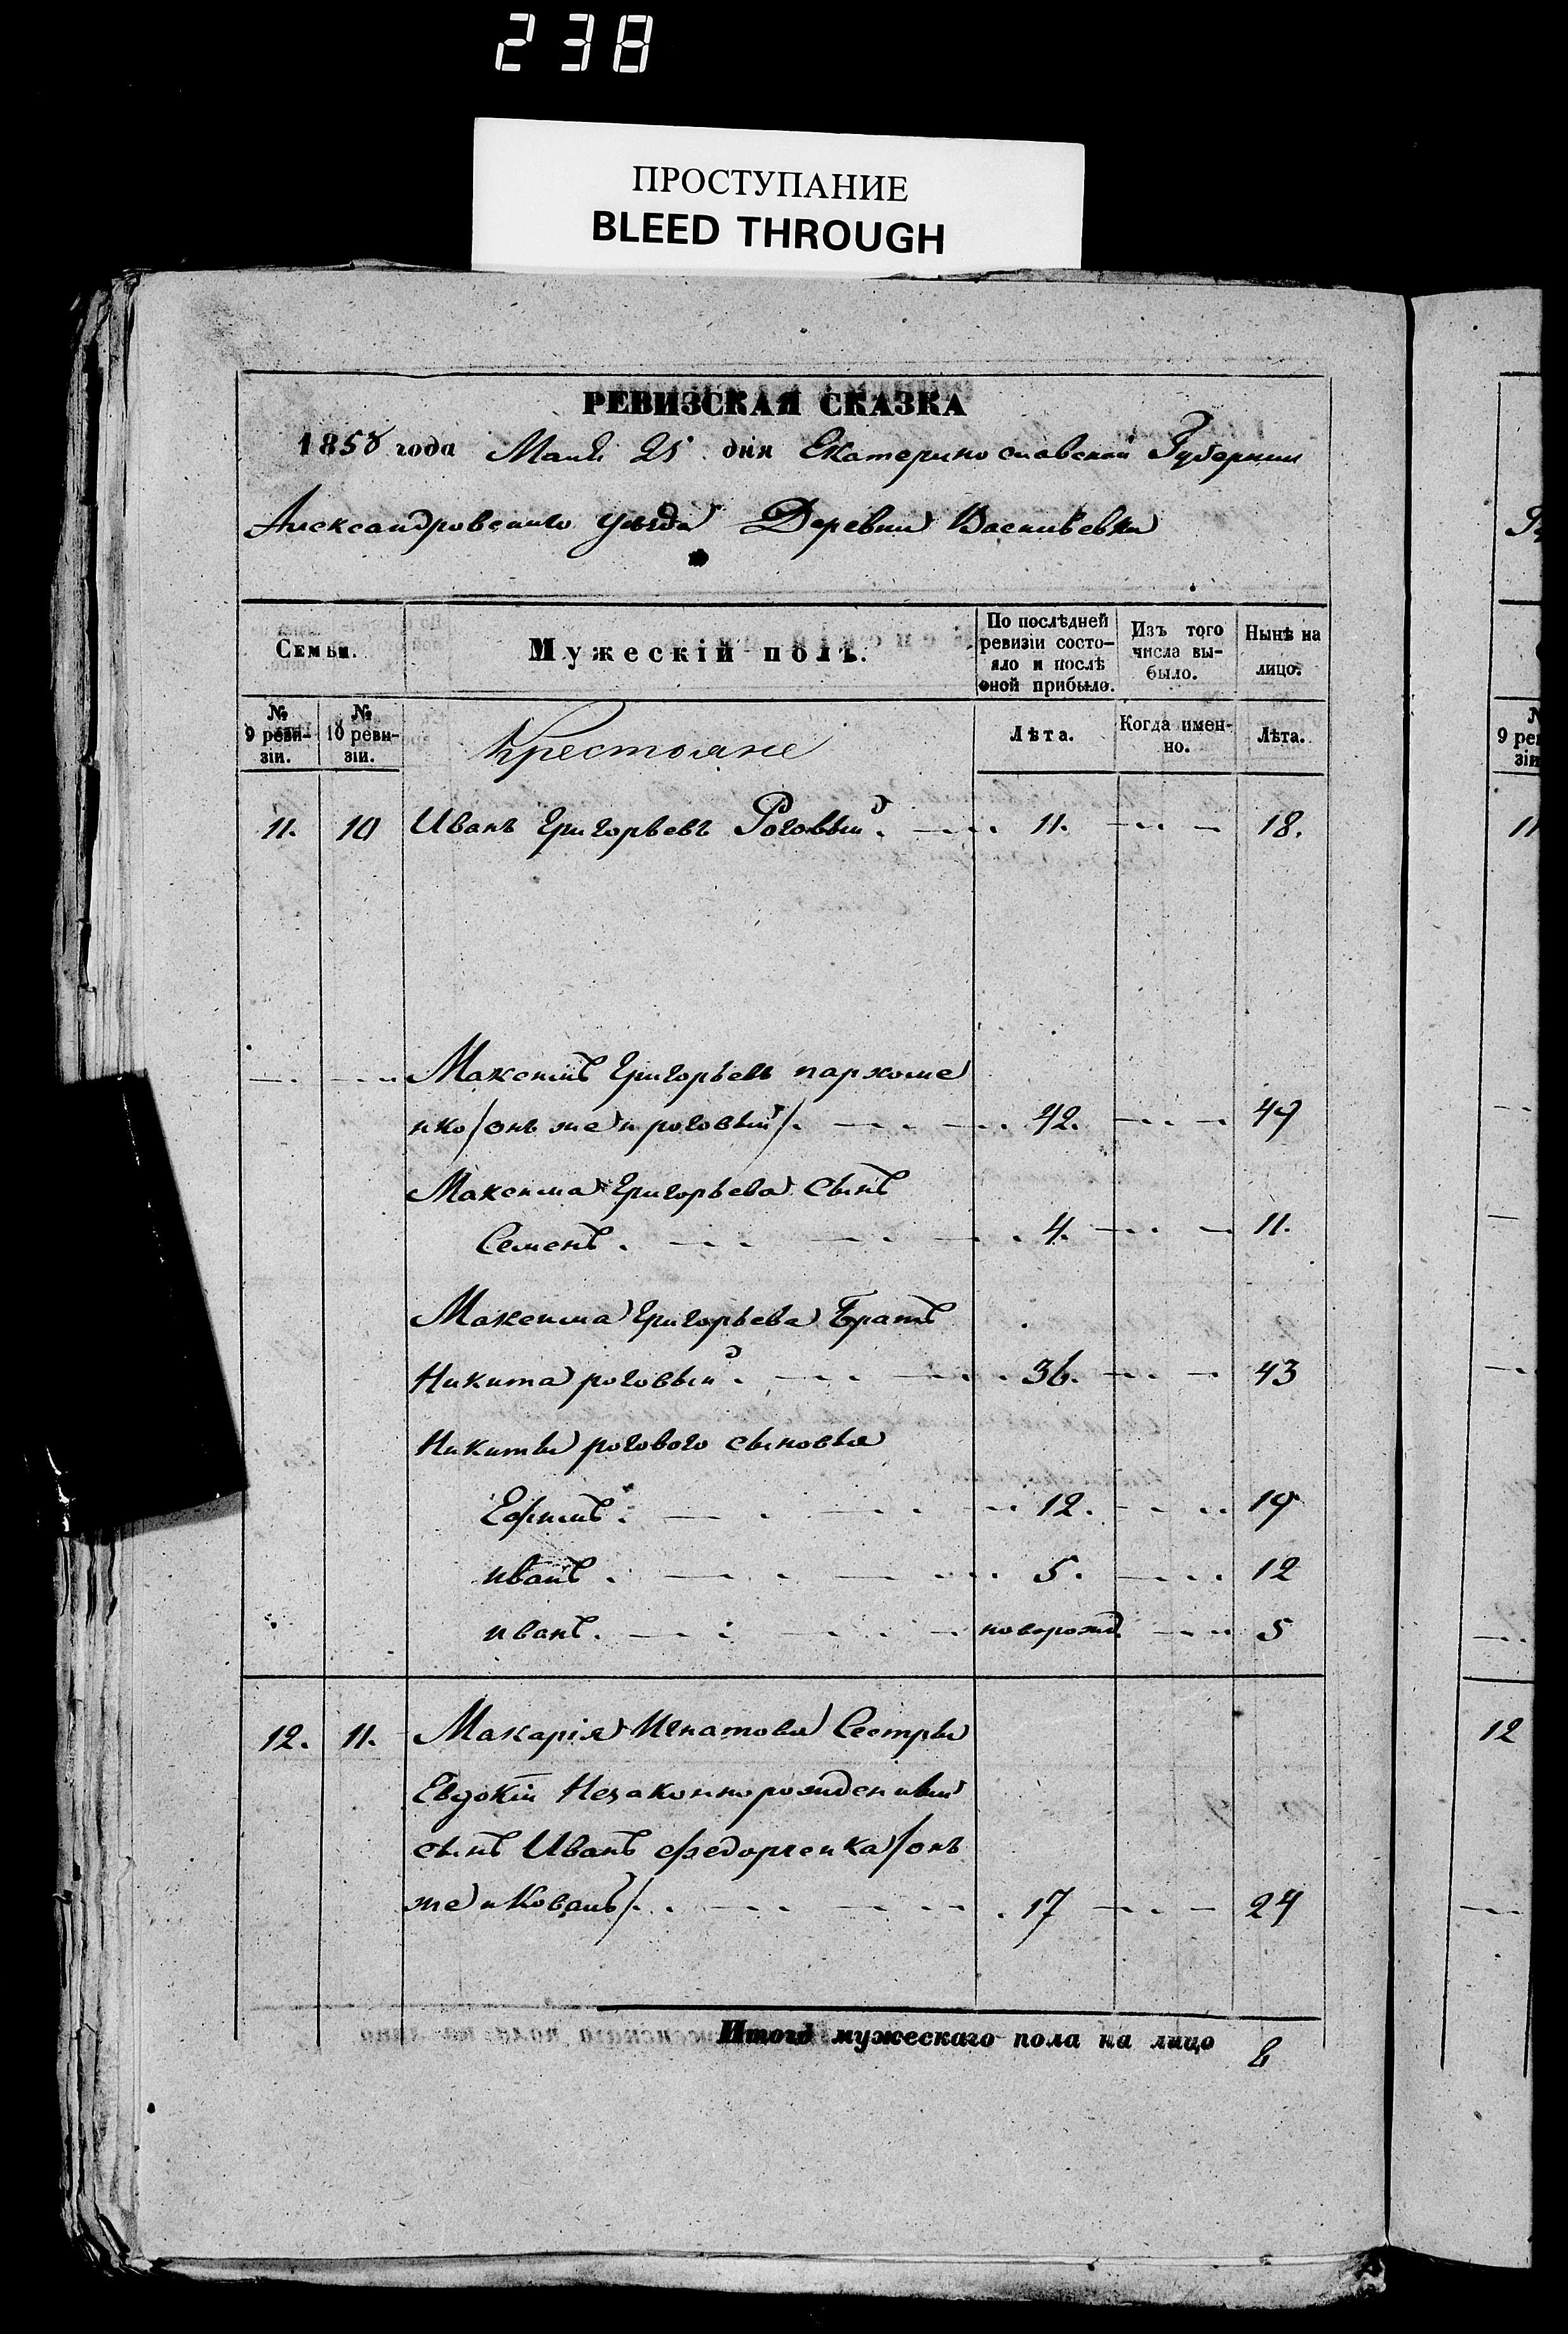 238
ПРОСТУПАНИЕ
BLEED THROUGH
РЕВИЗСКАЯ СКАЗКА
1858 года Мая 25 дня Екатеринославской Губернии
Александровскаго уезда Деревни Василѣевки
Семьи. Мужескій полъ. По послѣдней ревизіи состояло и послѣ оной прибыло. Изъ того числа выбыло. Нынѣ на лицо.
№ 9 ревизіи. № 10 ревизіи. Крестьяне Лѣта. Когда именно. Лѣта.
11. 10 Иванъ Григорьевъ Роговый. 11. 18.
Максимъ Григорьевъ пархоме
нко /онъ же и роговый/. 42. 49
Максима Григорьева сынъ
Семенъ. 4. 11.
Максима Григорьева Братъ
Никита роговый. 36. 43
Никиты рогового сыновья
Ефимъ. 12. 19
иванъ. 5. 12
иванъ. новорожд. 5
12. 11. Макарія Игнатова Сестры
Евдокіи Незаконнорожденный
сынъ Иванъ Федорченка /онъ
же и Коваль/. 17 24
Итого мужескаго пола на лицо 8
9 ревизіи
11
12